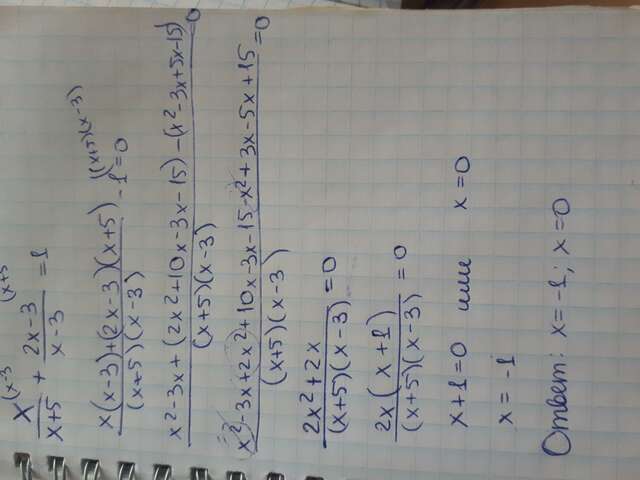 x^(x-3)/(x+5) + (2x-3)^(x+5)/(x-3) = 1
(x(x-3)+(2x-3)(x+5))/((x+5)(x-3)) - 1^((x+5)(x-3)) = 0
(x²-3x+(2x²+10x-3x-15)-(x²-3x+5x-15))/((x+5)(x-3)) = 0
(x²-3x+2x²+10x-3x-15-x²+3x-5x+15)/((x+5)(x-3)) = 0
(2x²+2x)/((x+5)(x-3)) = 0
(2x(x+1))/((x+5)(x-3)) = 0
x+1=0 или x=0
x=-1
Ответ: x=-1; x=0